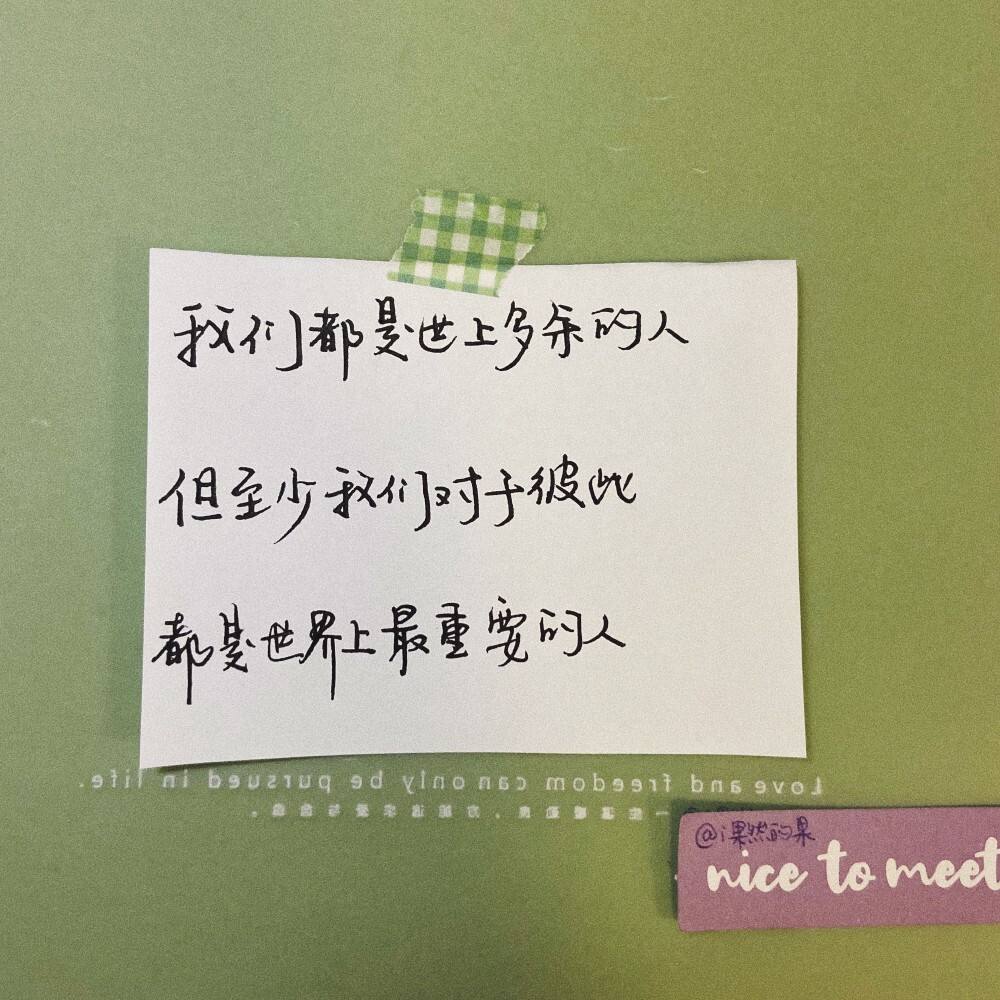 我们都是世上多余的人
但至少我们对于彼此
都是世界上最重要的人
Love and freedom can only be pursued in life.
@i果然的果
nice to meet